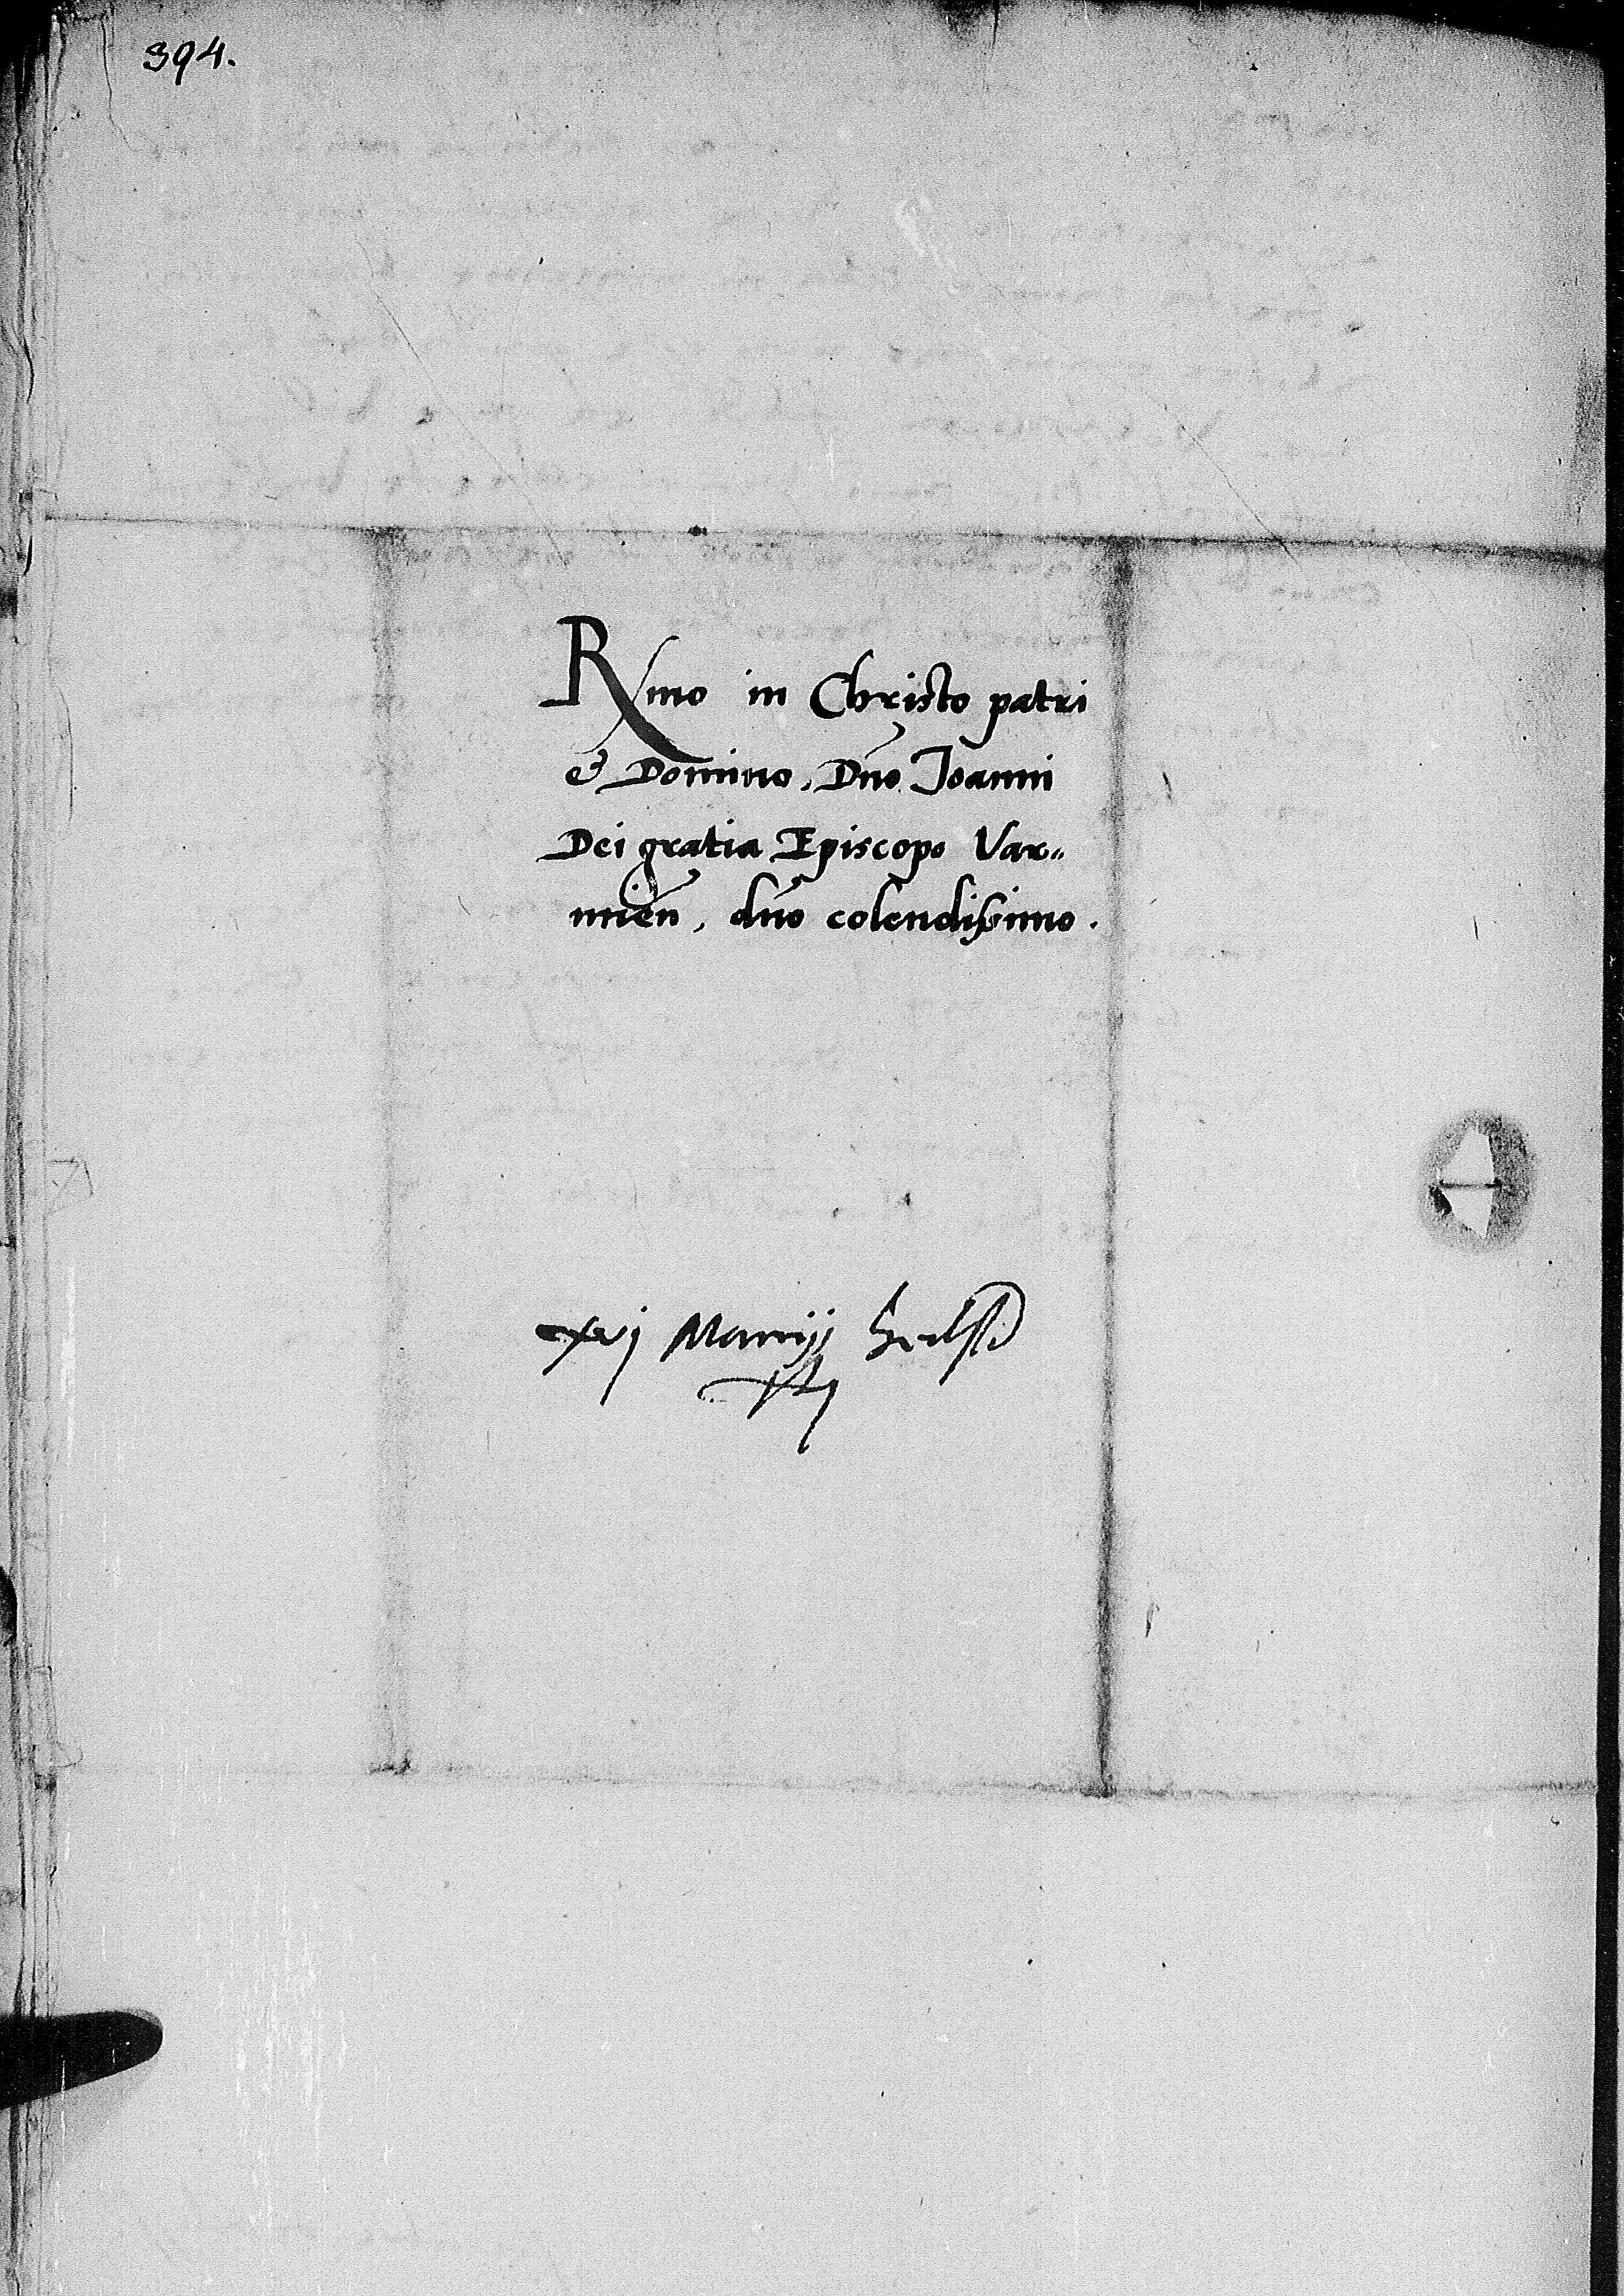 394.
Rmo in Christo patri
& Domino, Dno Joanni
Dei gratia Episcopo Var„
mien, dno colendissimo.
xvj Marcij